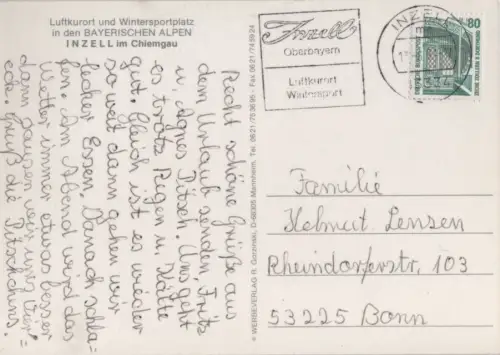 Luftkurort und Wintersportplatz
in den BAYERISCHEN ALPEN
INZELL im Chiemgau
Recht schöne Grüße aus
dem Urlaub senden Fritz
u. Agnes Pitsch. Uns geht
es trotz Regen u. Kälte
gut. Gleich ist es wieder
so weit dann gehen wir
lecker Essen. Danach schla=
fen. Am Abend wird das
Wetter immer etwas besser
dann sausen wir ums Vier=
eck. Gruß die Pitschouns.
© WERBEVERLAG R. Garzinski, D-68305 Mannheim, Tel. 0621/753695 - Fax 0621/745924
Inzell
Oberbayern
Luftkurort
Wintersport
INZELL
80
Familie
Helmut Lensen
Rheindorferstr. 103
53225 Bonn